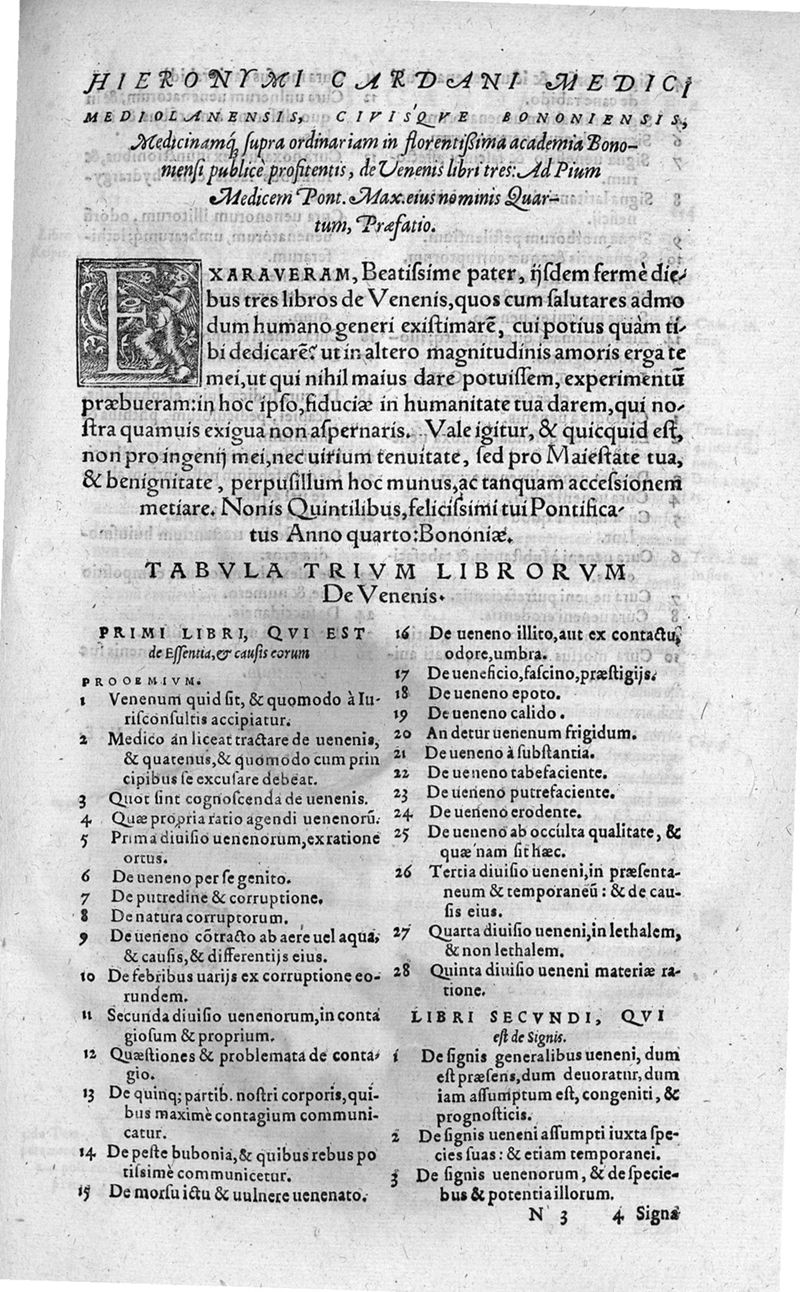 HIERONYMI CARDANI MEDICI
MEDIOLANENSIS, CIVISQVE BONONIENSIS,
Medicinamq́; supra ordinariam in florentißima academia Bono-
niensi publicè profitentis, de Venenis libri tres: Ad Pium
Medicem Pont. Max. eius nominis Quar-
tum, Præfatio.
EXARAVERAM, Beatissime pater, ijsdem fermè die-
bus tres libros de Venenis, quos cum salutares admo
dum humano generi existimarẽ, cui potius quàm ti-
bi dedicarẽ? ut in altero magnitudinis amoris erga te
mei, ut qui nihil maius dare potuissem, experimentũ
præbueram: in hoc ipso, fiduciæ in humanitate tua darem, qui no-
stra quamuis exigua non aspernaris. Vale igitur, & quicquid est,
non pro ingenij mei, nec uirium tenuitate, sed pro Maiestate tua,
& benignitate, perpusillum hoc munus, ac tanquam accessionem
metiare. Nonis Quintilibus, felicissimi tui Pontifica-
tus Anno quarto: Bononiæ.
TABVLA TRIVM LIBRORVM
De Venenis.
PRIMI LIBRI, QVI EST
de Essentia, & causis eorum
PROOEMIVM.
1 Venenum quid sit, & quomodo à Iu-
risconsultis accipiatur.
2 Medico an liceat tractare de uenenis,
& quatenus, & quomodo cum prin
cipibus se excusare debeat.
3 Quot sint cognoscenda de uenenis.
4 Quæ propria ratio agendi uenenorũ.
5 Prima diuisio uenenorum, ex ratione
ortus.
6 De ueneno per se genito.
7 De putredine & corruptione.
8 De natura corruptorum.
9 De ueneno cõtracto ab aere uel aqua,
& causis, & differentijs eius.
10 De febribus uarijs ex corruptione eo-
rundem.
11 Secunda diuisio uenenorum, in conta
giosum & proprium.
12 Quæstiones & problemata de conta-
gio.
13 De quinq; partib. nostri corporis, qui-
bus maximè contagium communi-
catur.
14 De peste bubonia, & quibus rebus po
tissimè communicetur.
15 De morsu ictu & uulnere uenenato.
16 De ueneno illito, aut ex contactu,
odore, umbra.
17 De ueneficio, fascino, præstigijs.
18 De ueneno epoto.
19 De ueneno calido.
20 An detur uenenum frigidum.
21 De ueneno à substantia.
22 De ueneno tabefaciente.
23 De ueneno putrefaciente.
24 De ueneno erodente.
25 De ueneno ab occulta qualitate, &
quæ nam sit hæc.
26 Tertia diuisio ueneni, in præsenta-
neum & temporaneũ: & de cau-
sis eius.
27 Quarta diuisio ueneni, in lethalem,
& non lethalem.
28 Quinta diuisio ueneni materiæ ra-
tione.
LIBRI SECVNDI, QVI
est de Signis.
1 De signis generalibus ueneni, dum
est præsens, dum deuoratur, dum
iam assumptum est, congeniti, &
prognosticis.
2 De signis ueneni assumpti iuxta spe-
cies suas: & etiam temporanei.
3 De signis uenenorum, & de specie-
bus & potentia illorum.
N 3 4 Signa